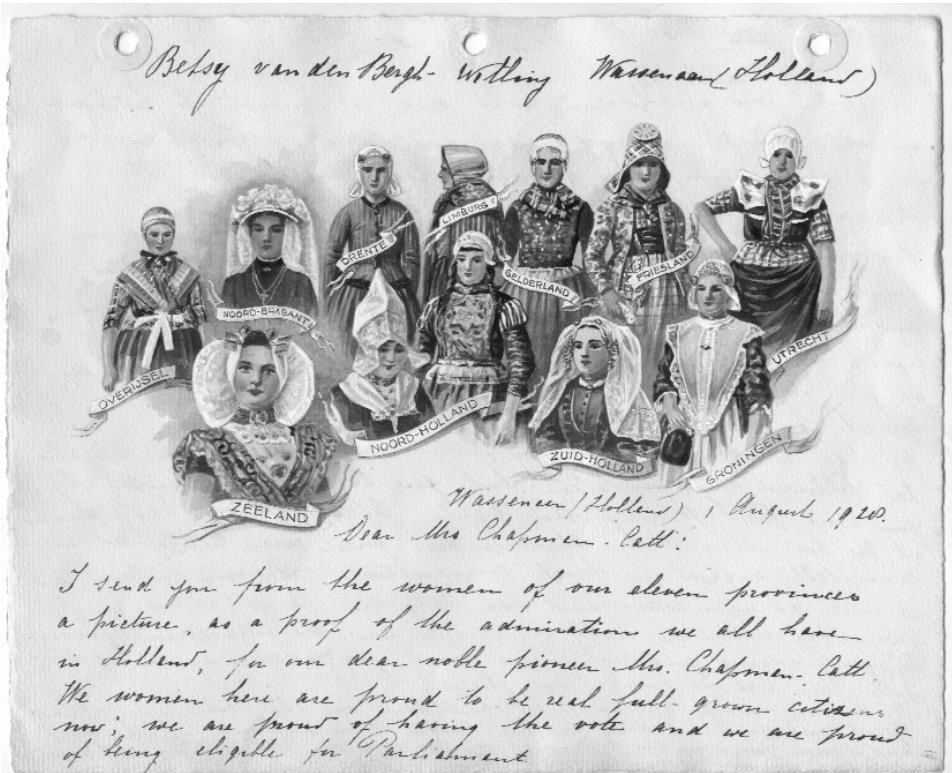 Betsy van den Bergh - Willing Wassenaar (Holland)
DRENTE
LIMBURG
GELDERLAND
FRIESLAND
NOORD-BRABANT
UTRECHT
OVERIJSEL
NOORD-HOLLAND
ZUID-HOLLAND
GRONINGEN
ZEELAND
Wassenaar (Holland), 1 August 1920.
Dear Mrs Chapman-Catt:
I send you from the women of our eleven provinces
a picture, as a proof of the admiration we all have
in Holland, for our dear noble pioneer Mrs. Chapman-Catt.
We women here are proud to be real full-grown citizens
now; we are proud of having the vote and we are proud
of being eligible for Parliament